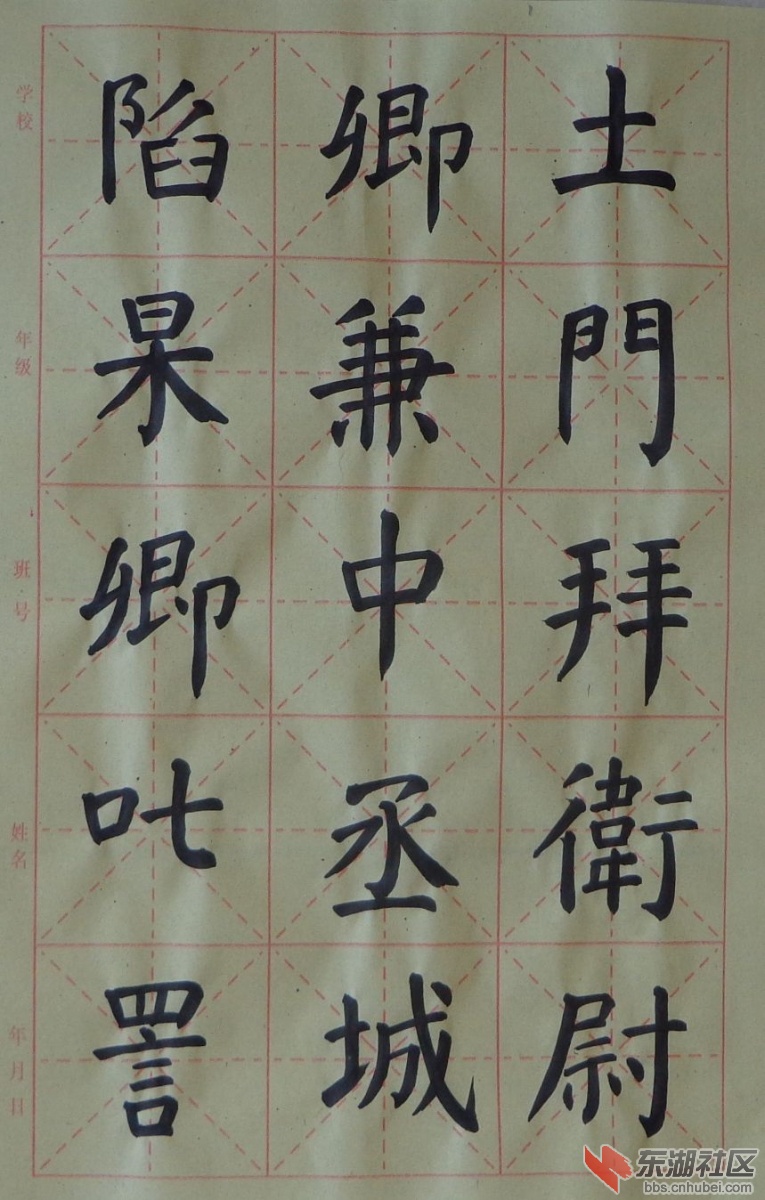 土門拜衛尉
卿兼中丞城
陷杲卿叱詈
学校
年级
班号
姓名
年月日
东湖社区
bbs.cnhubei.com